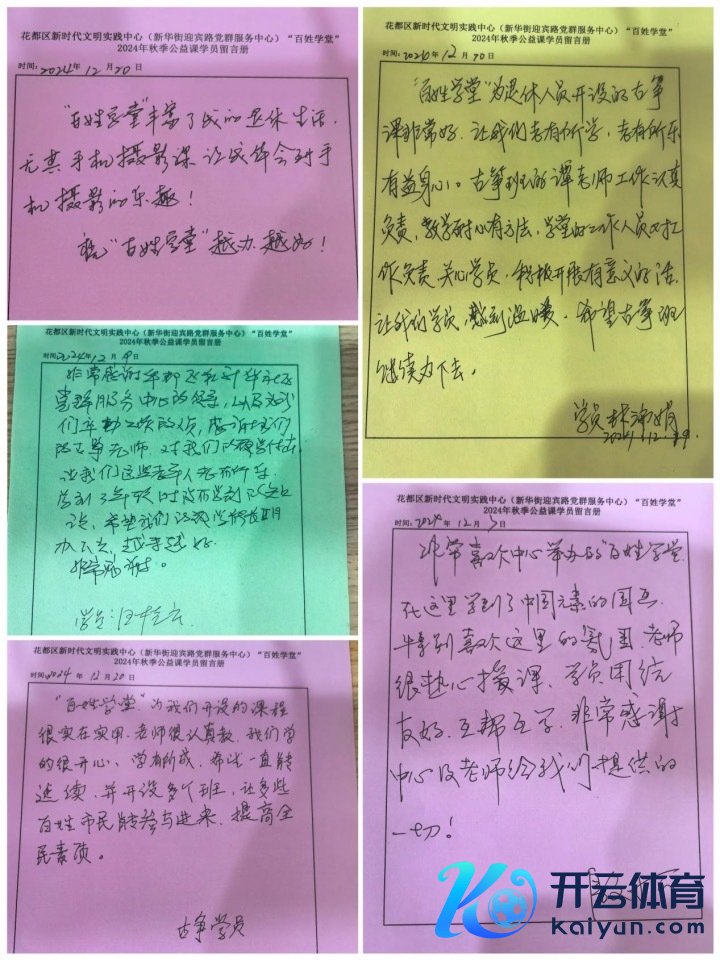 花都区新时代文明实践中心（新华街迎宾路党群服务中心）“百姓学堂”
2024年秋季公益课学员留言册
时间：2024年12月20日
“百姓学堂”丰富了我的退休生活，
尤其手机摄影课让我体会到手
机摄影的乐趣！
祝“百姓学堂”越办越好！
花都区新时代文明实践中心（新华街迎宾路党群服务中心）“百姓学堂”
2024年秋季公益课学员留言册
时间：2024年12月9日
非常感谢
党群服务中心的领导，以及为我
们辛勤工作的
老师，对我们
让我们这些老年人老有所乐。
希望我们
办下去，越来越好。
非常感谢。
学员：
花都区新时代文明实践中心（新华街迎宾路党群服务中心）“百姓学堂”
2024年秋季公益课学员留言册
时间：2024年12月20日
“百姓学堂”为我们开设的课程
很实在实用，老师很认真教，我们学
的很开心、学有所成，希望一直能
连续，并开设多个班，让多些
百姓市民能参与进来，提高全
民素质。
古争学员
花都区新时代文明实践中心（新华街迎宾路党群服务中心）“百姓学堂”
2024年秋季公益课学员留言册
时间：2024年12月20日
“百姓学堂”为退休人员开设的古筝
课非常好，让我们老有所学，老有所乐
有益身心。古筝班的谭老师工作认真
负责，教学耐心有方法，学堂的工作人员对工
作负责，关心学员，积极开展有意义的活，
让我们学员，感到温暖。希望古筝班
继续办下去。
学员 林
2024.12.19
花都区新时代文明实践中心（新华街迎宾路党群服务中心）“百姓学堂”
2024年秋季公益课学员留言册
时间：2024年12月
非常喜欢中心举办的“百姓学堂
在这里学到了中国元素的国画
特别喜欢这里的氛围，老师
很热心授课、学员团结
友好，互帮互学，非常感谢
中心及老师给我们提供的
一切！
开云体育
kaiyun.com